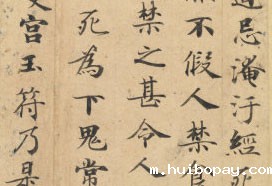 忌淹汙經
不假人禁食
禁之甚令人
死為下鬼常
宮玉符乃是
m.huibopay.com